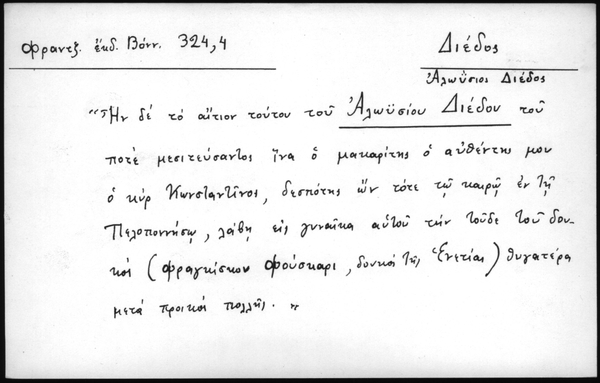 Φραντζ. ἐκδ. Βόνν. 324,4
Διέδος
Ἀλωΰσιος Διέδος
"Ἦν δέ τό αἴτιον τούτου τοῦ Ἀλωϋσίου Διέδου τοῦ
ποτέ μεσιτεύσαντος ἵνα ὁ μακαρίτης ὁ αὐθέντης μου
ὁ κύρ Κωνσταντῖνος, δεσπότης ὤν τότε τῷ καιρῷ ἐν τῇ
Πελοποννήσῳ, λάβῃ εἰς γυναῖκα αὐτοῦ τήν τοῦδε τοῦ δου-
κός (Φραγκίσκου Φούσκαρι, δουκός τῆς Ἑνετίας) θυγατέρα
μετά προικός πολλῆς. "